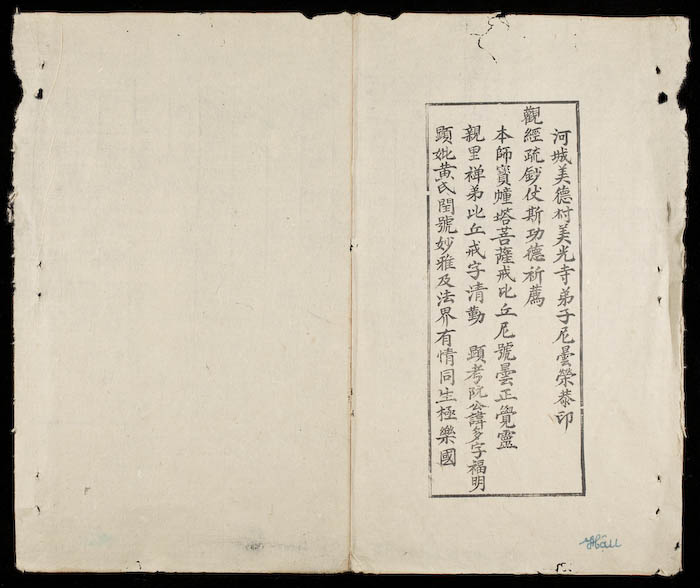 河城美德村美光寺弟子尼曇榮恭印
觀經疏鈔仗斯功德祈薦
本師寶幢塔菩薩戒比丘尼號曇正覺靈
親里禅弟比丘戒字清勤 顕考阮公諱多字福明
顕妣黄氏閏號妙雅及法界有情同生極樂國
Hậu